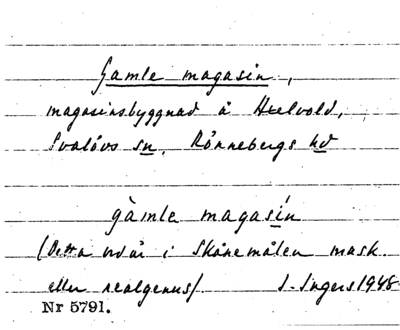 Gamle magasin,
magasinsbyggnad å Huelvold,
Svalövs sn, Rönnebergs hd
gàmle magasín
(Detta ord är i Skånemålen mask.
eller realgenus).    I. Ingers 1948
Nr 5791.